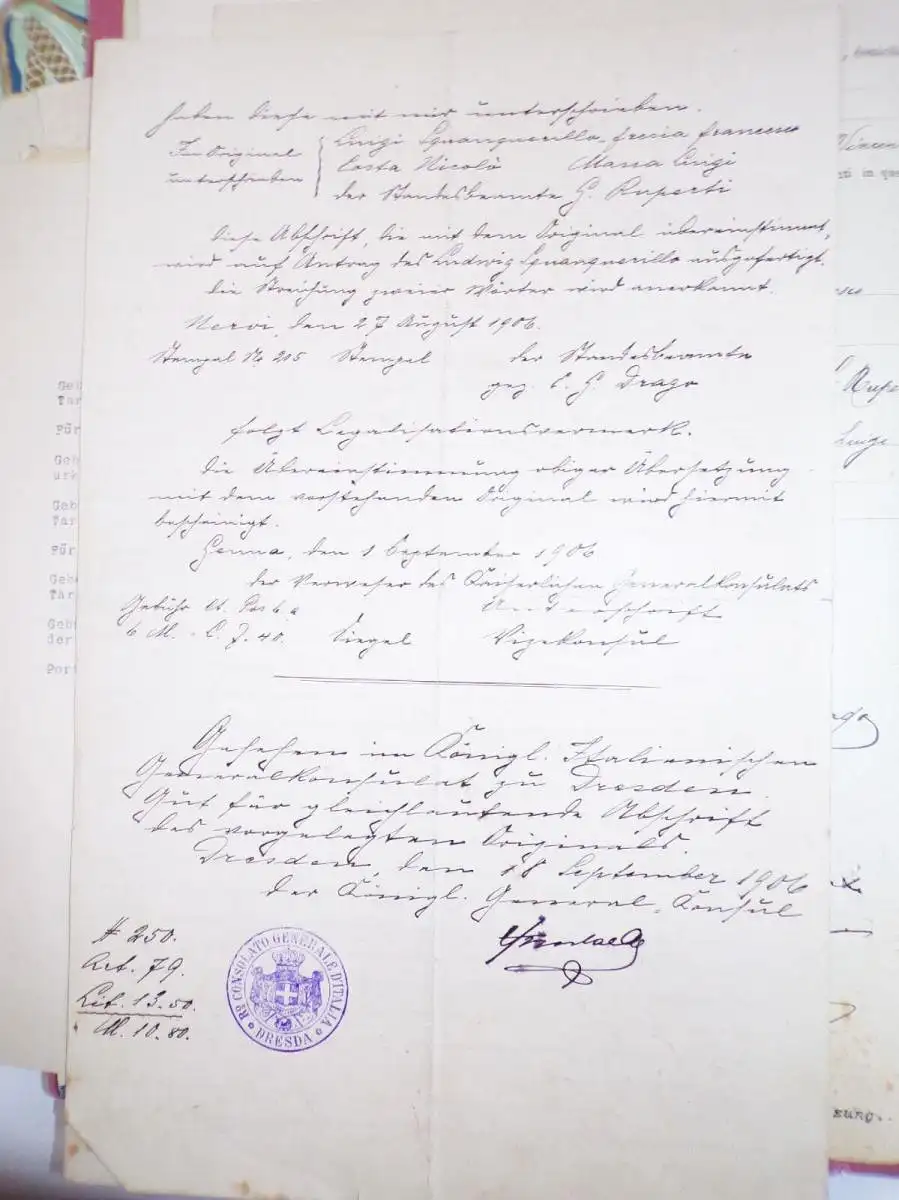 haben diese mit mir unterschrieben.
Im Original unterschrieben
Luigi Squarquerillo. Frecia Francesco
Costa Nicolò Massa Luigi
der Standesbeamte G. Ruperti
Diese Abschrift, die mit dem Original übereinstimmt,
wird auf Antrag des Ludwig ausgefertigt.
Die Streichung zweier Wörter wird anerkannt.
Nervi, den 27 August 1906.
Stempel No 205 Stempel der Standesbeamte
gez. E. G. Drago
folgt Legalisationsvermerk.
Die Übereinstimmung obiger Übersetzung
mit dem vorstehenden Original wird hiermit
bescheinigt.
Genua, den 1 September 1906
der Verweser des Kaiserlichen Generalkonsulats
Gebühr lt. Pos 6 a Unterschrift
6 M. = L. 7. 40. Siegel Vizekonsul
Gesehen im Königl. Italienischen
Generalkonsulat zu Dresden.
Gut für gleichlautende Abschrift
des vorgelegten Originals.
Dresden, den 18 September 1906
der Königl. General-Konsul
# 250.
Art. 79.
Lit. 13.50.
M. 10.80.
Rº CONSOLATO GENERALE D'ITALIA
DRESDA
Geb
Tar
Für
Geb
urk
Geb
Tar
Für
Geb
Tar
Geb
der
Port
Luigi